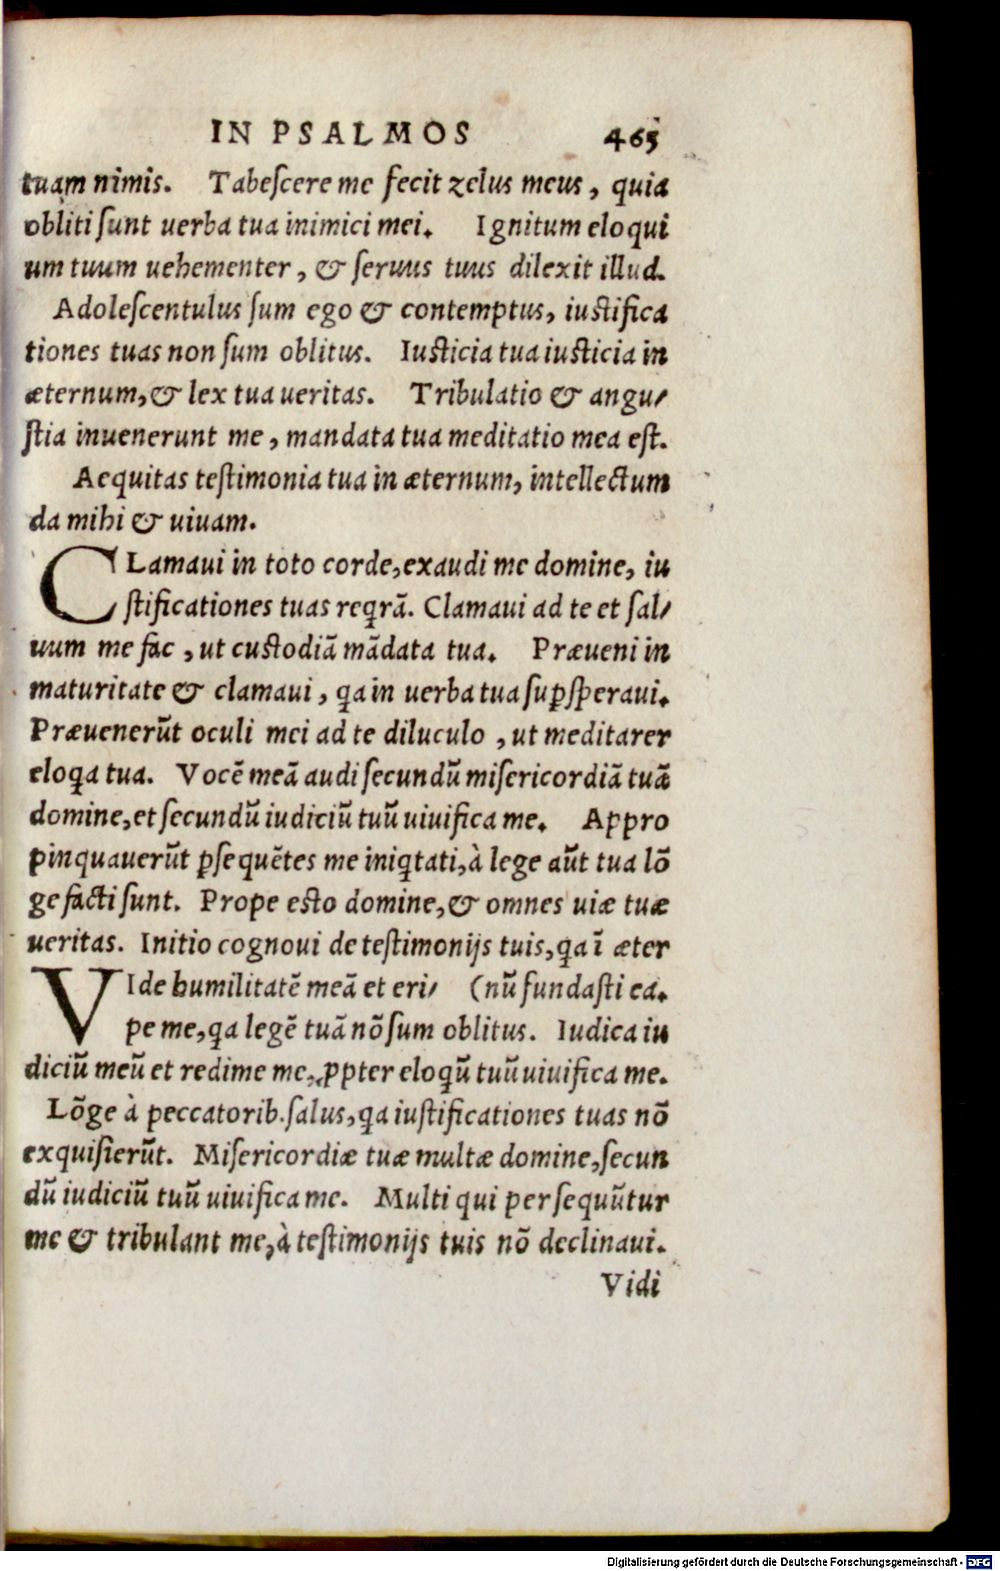 IN PSALMOS 465
tuam nimis. Tabeſcere me fecit zelus meus, quia
obliti ſunt uerba tua inimici mei. Ignitum eloqui
um tuum uehementer, & ſeruus tuus dilexit illud.
Adoleſcentulus ſum ego & contemptus, iuſtifica
tiones tuas non ſum oblitus. Iuſticia tua iuſticia in
æternum, & lex tua ueritas. Tribulatio & angu/
ſtia inuenerunt me, mandata tua meditatio mea eſt.
Aequitas teſtimonia tua in æternum, intellectum
da mihi & uiuam.
CLamaui in toto corde, exaudi me domine, iu
ſtificationes tuas reqrã. Clamaui ad te et ſal/
uum me fac, ut cuſtodiã mãdata tua. Præueni in
maturitate & clamaui, qa in uerba tua ſuꝑſperaui.
Præuenerũt oculi mei ad te diluculo, ut meditarer
eloqa tua. Vocẽ meã audi ſecundũ miſericordiã tuã
domine, et ſecundũ iudiciũ tuũ uiuifica me. Appro
pinquauerũt ꝑſequẽtes me iniqtati, à lege aũt tua lõ
ge facti ſunt. Prope eſto domine, & omnes uiæ tuæ
ueritas. Initio cognoui de teſtimonijs tuis, qa ĩ æter
VIde humilitatẽ meã et eri/ (nũ fundaſti ea.
pe me, qa legẽ tuã nõ ſum oblitus. Iudica iu
diciũ meũ et redime me, ꝓpter eloqũ tuũ uiuifica me.
Lõge à peccatorib. ſalus, qa iuſtificationes tuas nõ
exquiſierũt. Miſericordiæ tuæ multæ domine, ſecun
dũ iudiciũ tuũ uiuifica me. Multi qui perſequũtur
me & tribulant me, à teſtimonijs tuis nõ declinaui.
Vidi
Digitalisierung gefördert durch die Deutsche Forschungsgemeinschaft - DFG